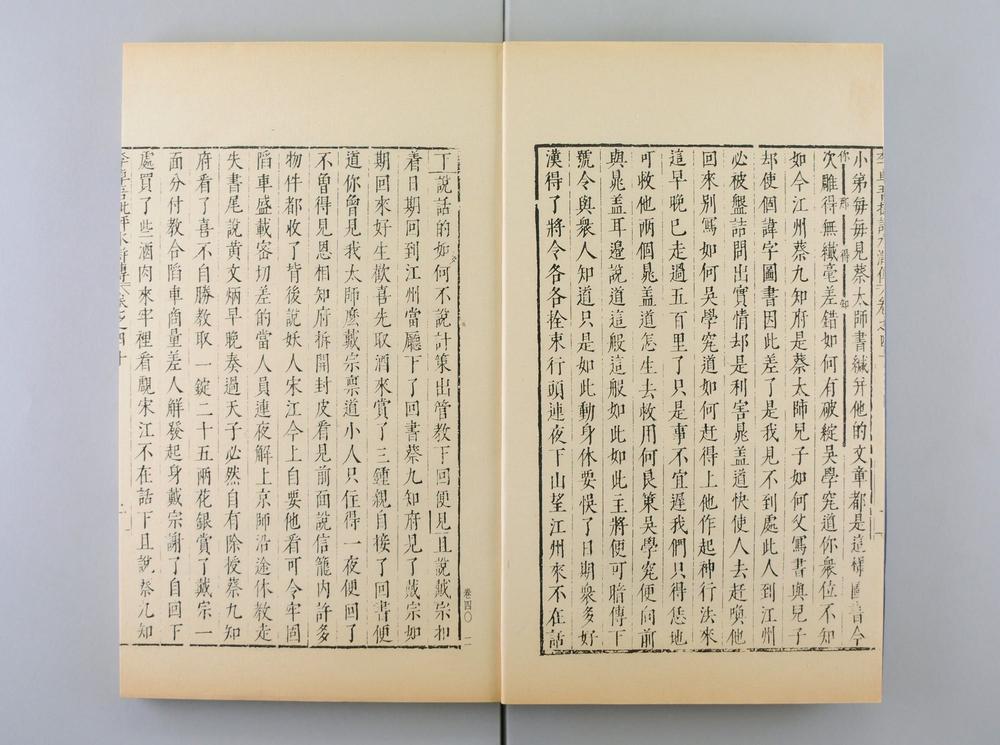 小弟每每見蔡太師書緘并他的文章都是這樣圖書今
次雕得無纖毫差錯如何有破綻吳學究道你衆位不知
如今江州蔡九知府是蔡太師兒子如何父寫書與兒子
却使個諱字圖書因此差了是我見不到處此人到江州
必被盤詰問出實情却是利害晁蓋道快使人去赶喚他
回來別寫如何吳學究道如何赶得上他作起神行法來
這早晚已走過五百里了只是事不宜遲我們只得恁地
可救他兩個晁蓋道怎生去救用何良策吳學究便向前
與晁蓋耳邊說道這般這般如此如此主將便可暗傳下
號令與衆人知道只是如此動身休要悞了日期衆多好
漢得了將令各各拴束行頭連夜下山望江州來不在話
下說話的如何不說計策出管教下回便見且說戴宗扣
着日期回到江州當廳下了回書蔡九知府見了戴宗如
期回來好生歡喜先取酒來賞了三鍾親自接了回書便
道你曾見我太師麽戴宗禀道小人只住得一夜便回了
不曾得見恩相知府拆開封皮看見前面說信籠內許多
物件都收了背後說妖人宋江今上自要他看可令牢固
陷車盛載密切差的當人員連夜解上京師沿途休教走
失書尾說黄文炳早晚奏過天子必然自有除授蔡九知
府看了喜不自勝教取一錠二十五兩花銀賞了戴宗一
面分付教合陷車商量差人解發起身戴宗謝了自回下
處買了些酒肉來牢裡看覷宋江不在話下且說蔡九知
卷四〇 二